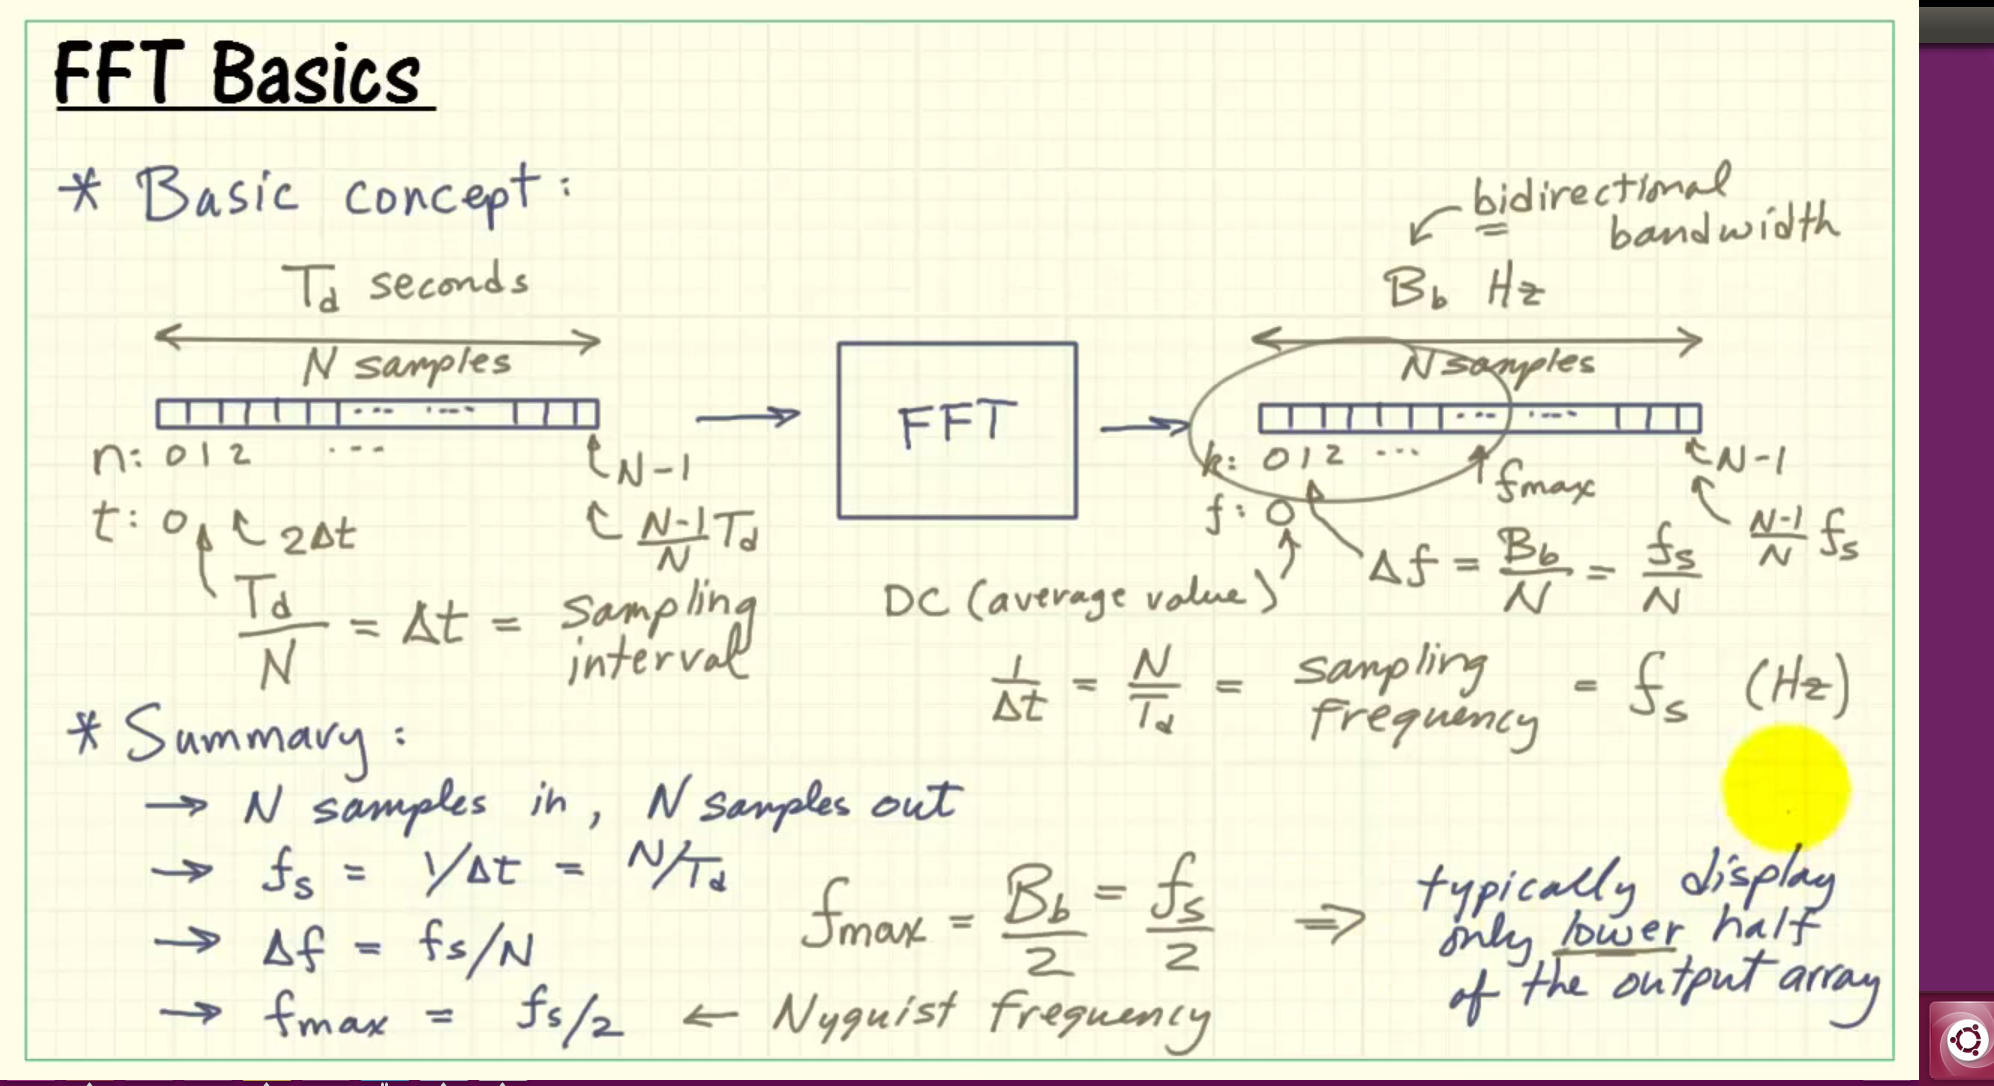 FFT Basics
* Basic concept:
T_d seconds
N samples
n: 0 1 2 ... N-1
t: 0 2Δt (N-1)/N T_d
T_d/N = Δt = sampling interval
FFT
bidirectional
bandwidth
B_b Hz
N samples
k: 0 1 2 ... fmax N-1
f: 0 Δf = B_b/N = f_s/N (N-1)/N f_s
DC (average value)
1/Δt = N/T_d = sampling frequency = f_s (Hz)
* Summary:
→ N samples in, N samples out
→ f_s = 1/Δt = N/T_d
→ Δf = f_s/N
→ fmax = f_s/2 ← Nyquist frequency
fmax = B_b/2 = f_s/2 ⇒ typically display
only lower half
of the output array